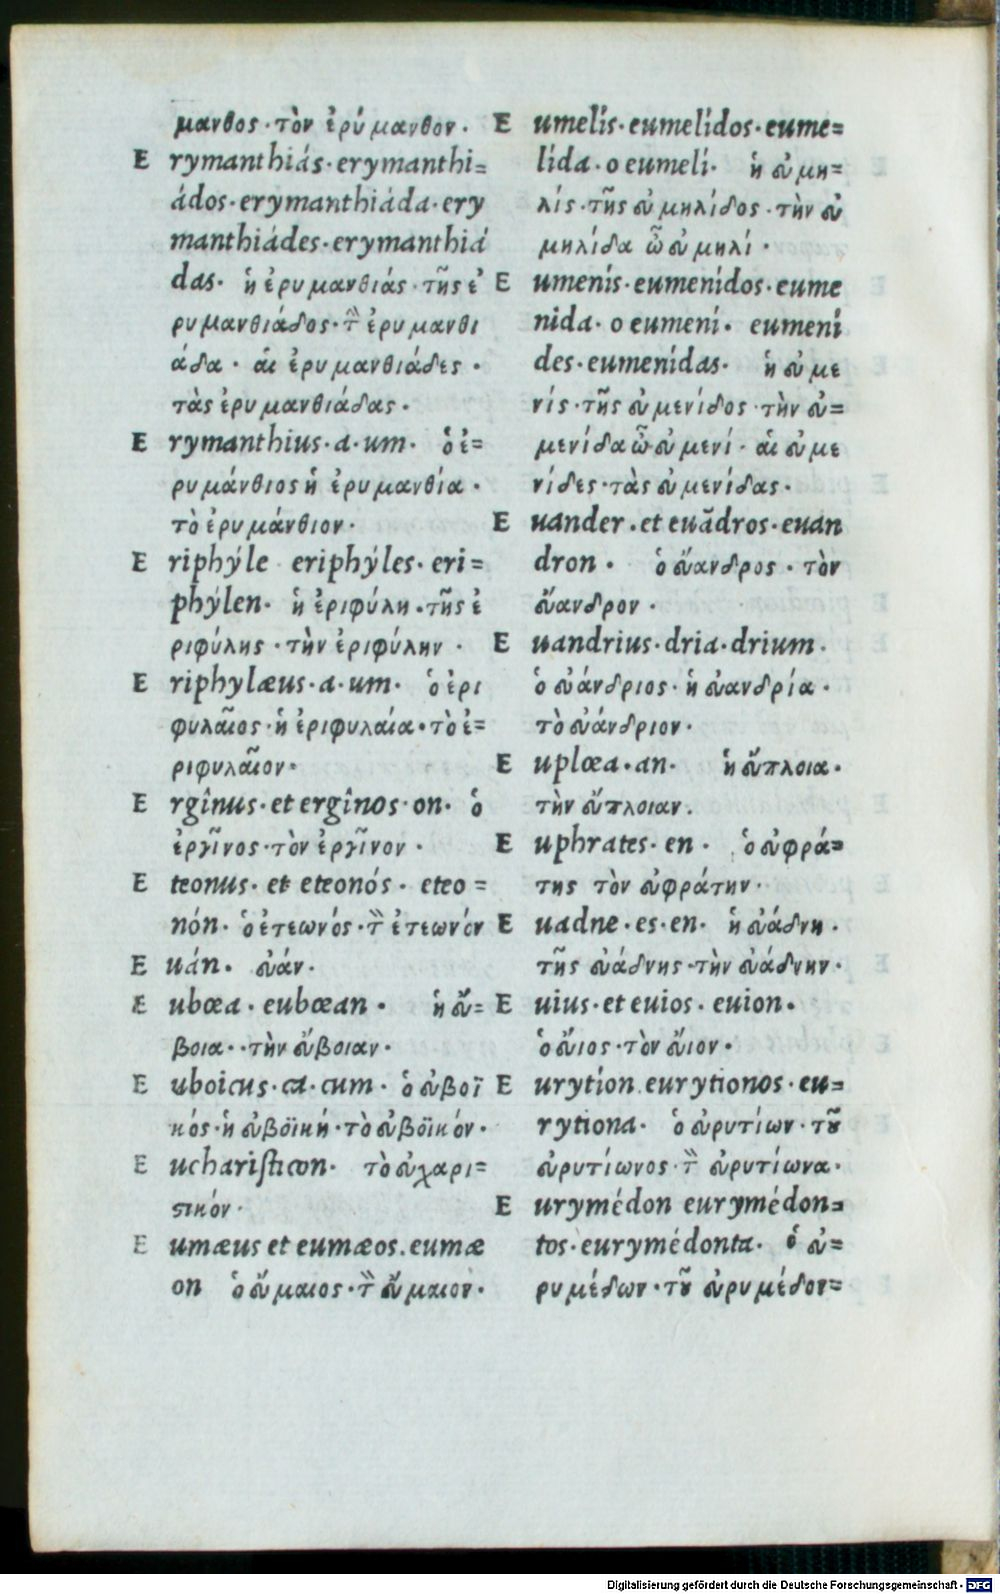 μανθος·τὸν ἐρύμανθον·
E rymanthiás·erymanthi=
ádos·erymanthiáda·ery
manthiádes·erymanthiá
das· ἡ ἐρυμανθιάς·τῆς ἐ
ρυμανθιάδος·τὴν ἐρυμανθι
άδα· αἱ ἐρυμανθιάδες·
τὰς ἐρυμανθιάδας·
E rymanthius·a·um· ὁ ἐ=
ρυμάνθιος ἡ ἐρυμανθία·
τὸ ἐρυμάνθιον·
E riphýle eriphýles·eri=
phýlen· ἡ ἐριφύλη·τῆς ἐ
ριφύλης·τὴν ἐριφύλην·
E riphylæus·a·um· ὁ ἐρι
φυλαῖος·ἡ ἐριφυλαία·τὸ ἐ=
ριφυλαῖον·
E rgînus·et erginos·on· ὁ
ἐργῖνος·τὸν ἐργῖνον·
E teonus·et eteonós·eteo=
nón· ὁ ἐτεωνός·τὴν ἐτεωνόν
E uán· εὐάν·
E ubœa·eubœan· ἡ εὔ=
βοια··τὴν εὔβοιαν·
E uboicus·ca·cum· ὁ εὐβοϊ
κός·ἡ εὐβοϊκή·τὸ εὐβοϊκόν·
E ucharisticon· τὸ εὐχαρι=
στικόν·
E umæus et eumæos.eumæ
on ὁ εὔμαιος·τὴν εὔμαιον·
E umelis·eumelídos·eume=
lída·o eumelí· ἡ εὐμη=
λίς·τῆς εὐμηλίδος·τὴν εὐ
μηλίδα ὦ εὐμηλί·
E umenis·eumenídos·eume
nida·o eumení· eumení
des·eumenídas· ἡ εὐμε
νίς·τῆς εὐμενίδος·τὴν εὐ=
μενίδα ὦ εὐμενί·αἱ εὐμε
νίδες·τὰς εὐμενίδας·
E uander.et euãdros·euan
dron· ὁ εὔανδρος·τὸν
εὔανδρον·
E uandrius·dria·drium·
ὁ εὐάνδριος·ἡ εὐανδρία·
τὸ εὐάνδριον·
E uplœa·an· ἡ εὔπλοια·
τὴν εὔπλοιαν.
E uphrates·en· ὁ εὐφρά=
της τὸν εὐφράτην·
E uadne·es·en· ἡ εὐάδνη·
τῆς εὐάδνης·τὴν εὐάδνην·
E uius·et euios·euion·
ὁ εὔιος·τὸν εὔιον·
E urytíon.eurytionos·eu=
rytiona· ὁ εὐρυτίων·τοῦ
εὐρυτίωνος·τὴν εὐρυτίωνα·
E urymédon eurymédon=
tos·eurymédonta· ὁ εὐ=
ρυμέδων·τοῦ εὐρυμέδον=
Digitalisierung gefördert durch die Deutsche Forschungsgemeinschaft · DFG